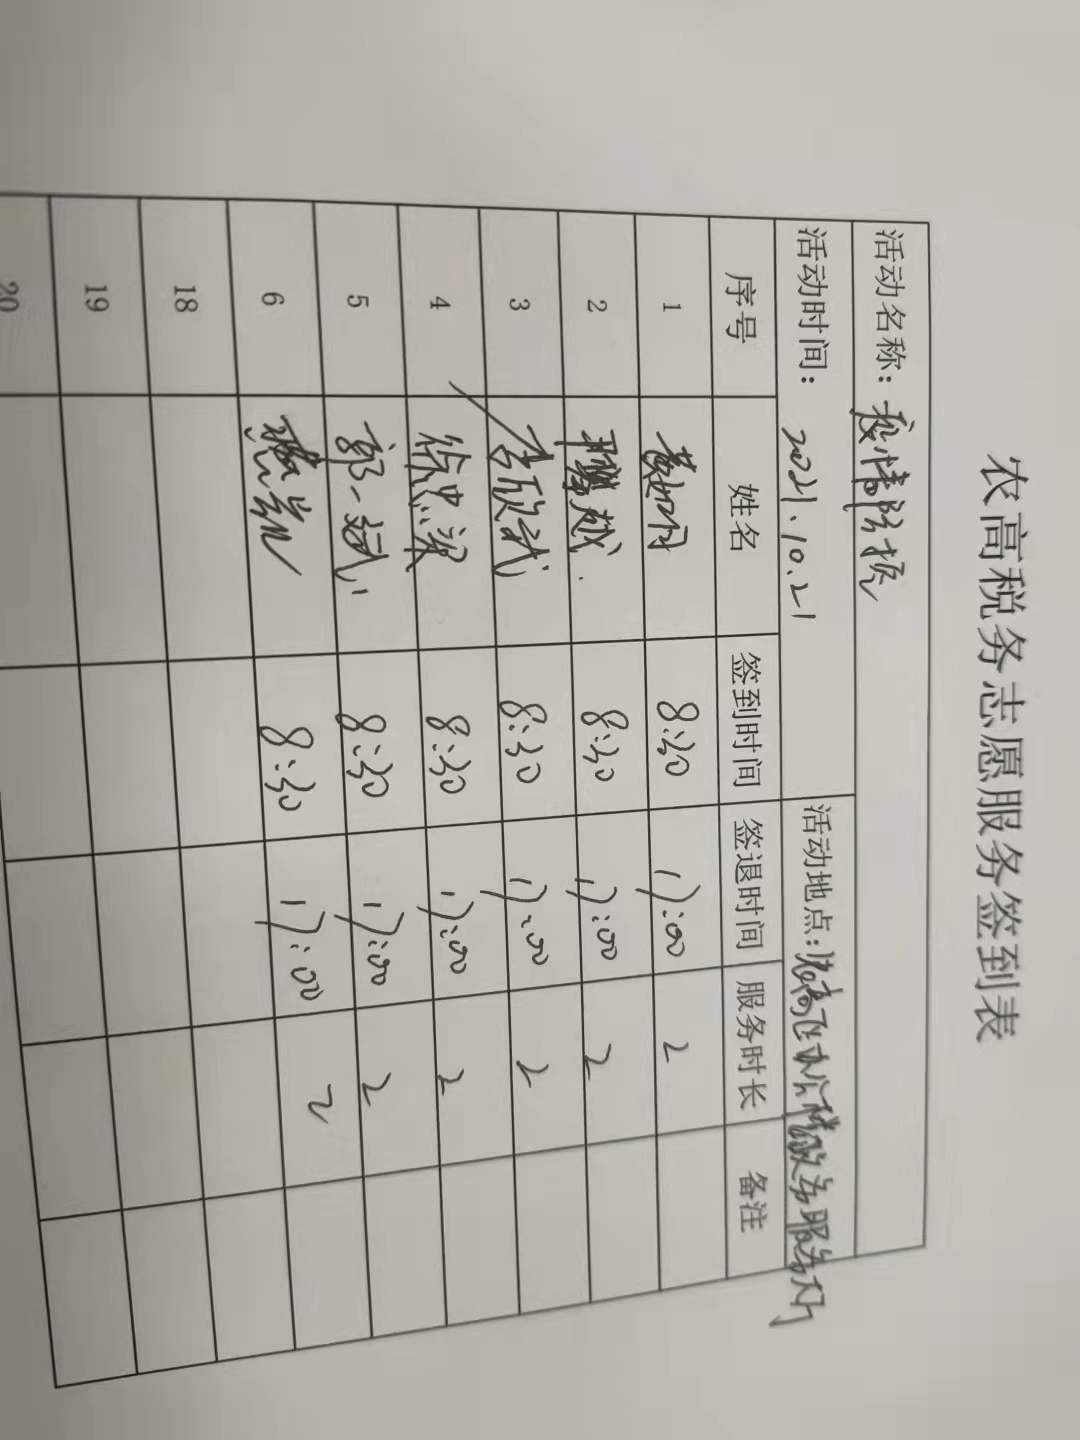 农高税务志愿服务签到表
活动名称：疫情防控
活动时间：2021.10.21 活动地点：农高区办公楼政务服务大厅
序号 姓名 签到时间 签退时间 服务时长 备注
1 8:30 17:00 2
2 8:30 17:00 2
3 李欣武 8:30 17:00 2
4 徐忠梁 8:30 17:00 2
5 郭一斌 8:30 17:00 2
6 8:30 17:00 2
18
19
20